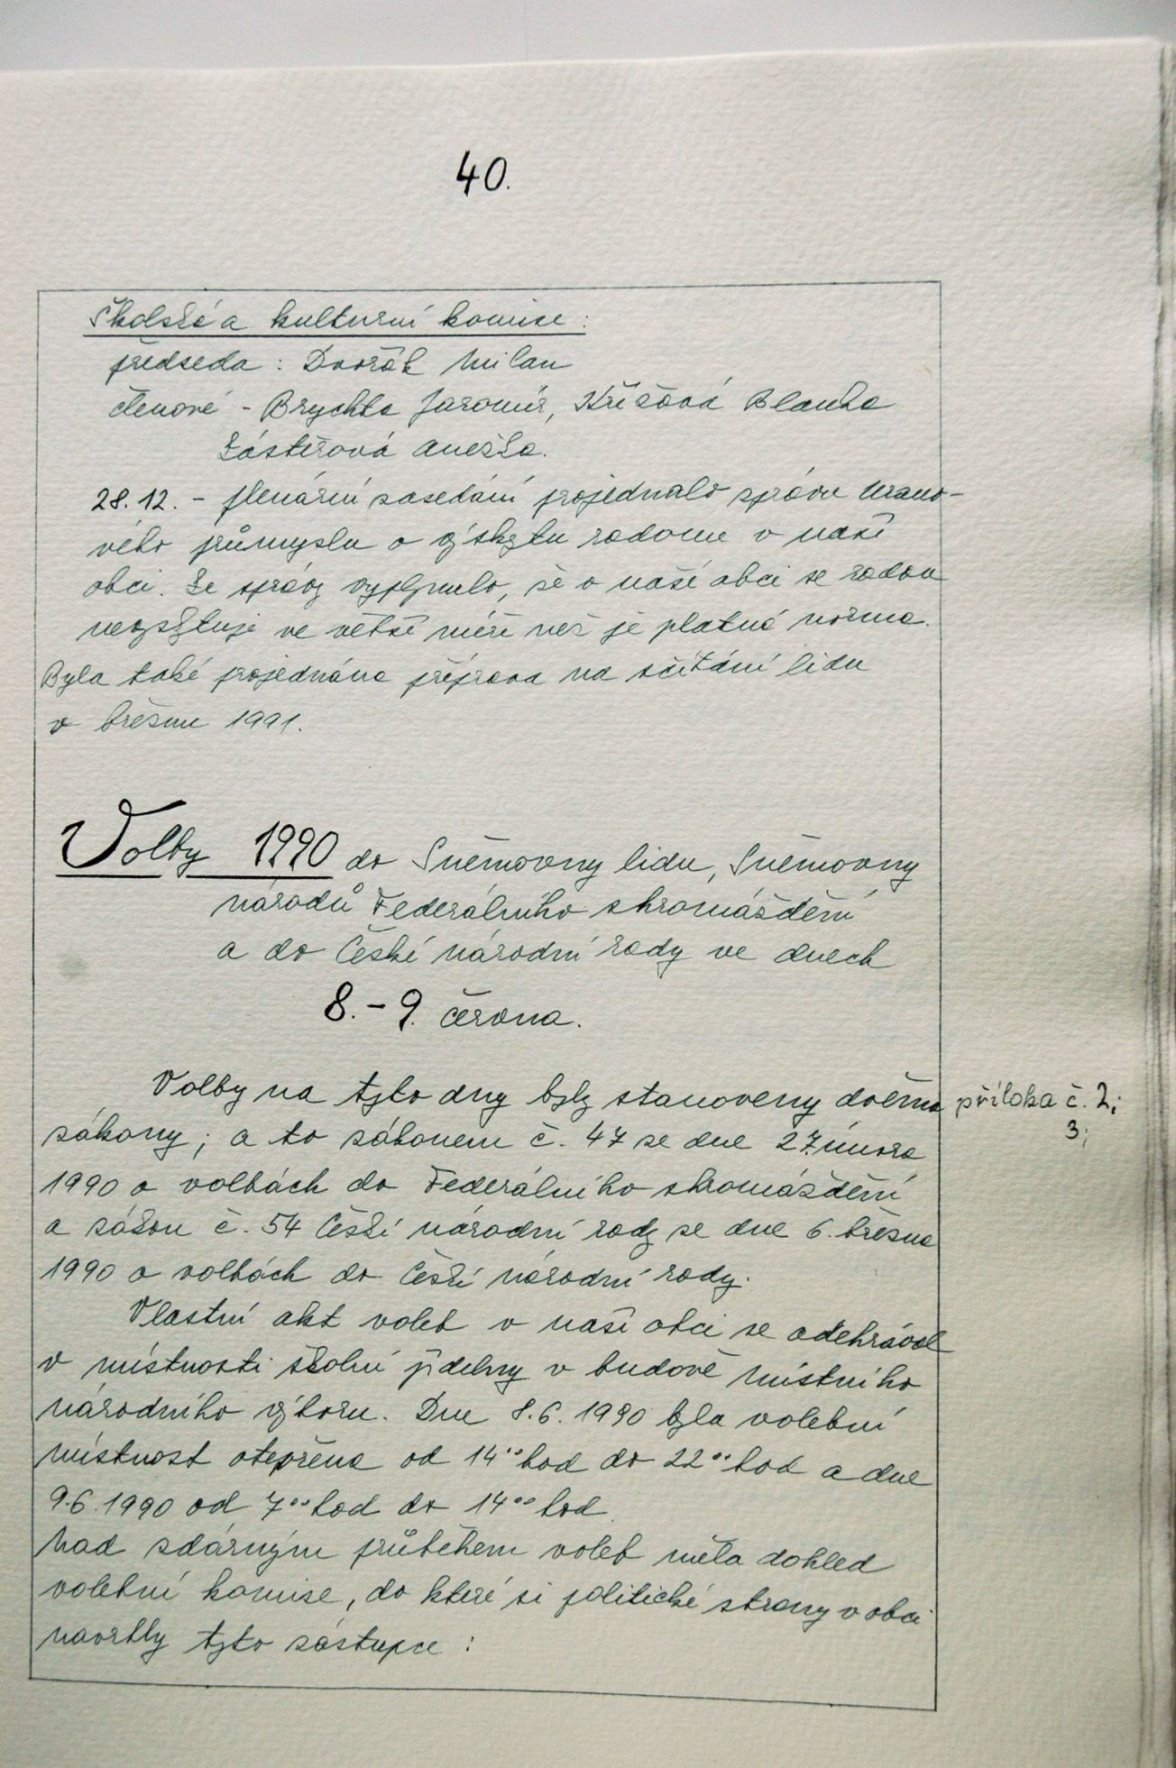 40.
Školská a kulturní komise:
předseda: Dvořák Milan
členové - Brychta Jaromír, Křížová Blanka
Zástěrová Anežka.
28.12. - plenární zasedání projednalo zprávu Urano-
vého průmyslu o výskytu radonu v naší
obci. Ze zprávy vyplynulo, že v naší obci se radon
nevyskytuje ve větší míře než je platná norma.
Byla také projednána příprava na sčítání lidu
v březnu 1991.
Volby 1990 do Sněmovny lidu, Sněmovny
národů Federálního shromáždění
a do České národní rady ve dnech
8. - 9. června.
Volby na tyto dny byly stanoveny dvěma příloha č. 2;
zákony; a to zákonem č. 47 ze dne 27. února 3;
1990 o volbách do Federálního shromáždění
a zákon č. 54 České národní rady ze dne 6. března
1990 o volbách do České národní rady.
Vlastní akt voleb v naší obci se odehrával
v místnosti školní jídelny v budově místního
národního výboru. Dne 8.6.1990 byla volební
místnost otevřena od 14⁰⁰ hod do 22⁰⁰ hod a dne
9.6.1990 od 7⁰⁰ hod do 14⁰⁰ hod.
Nad zdárným průběhem voleb měla dohled
volební komise, do které si politické strany v obci
navrhly tyto zástupce: